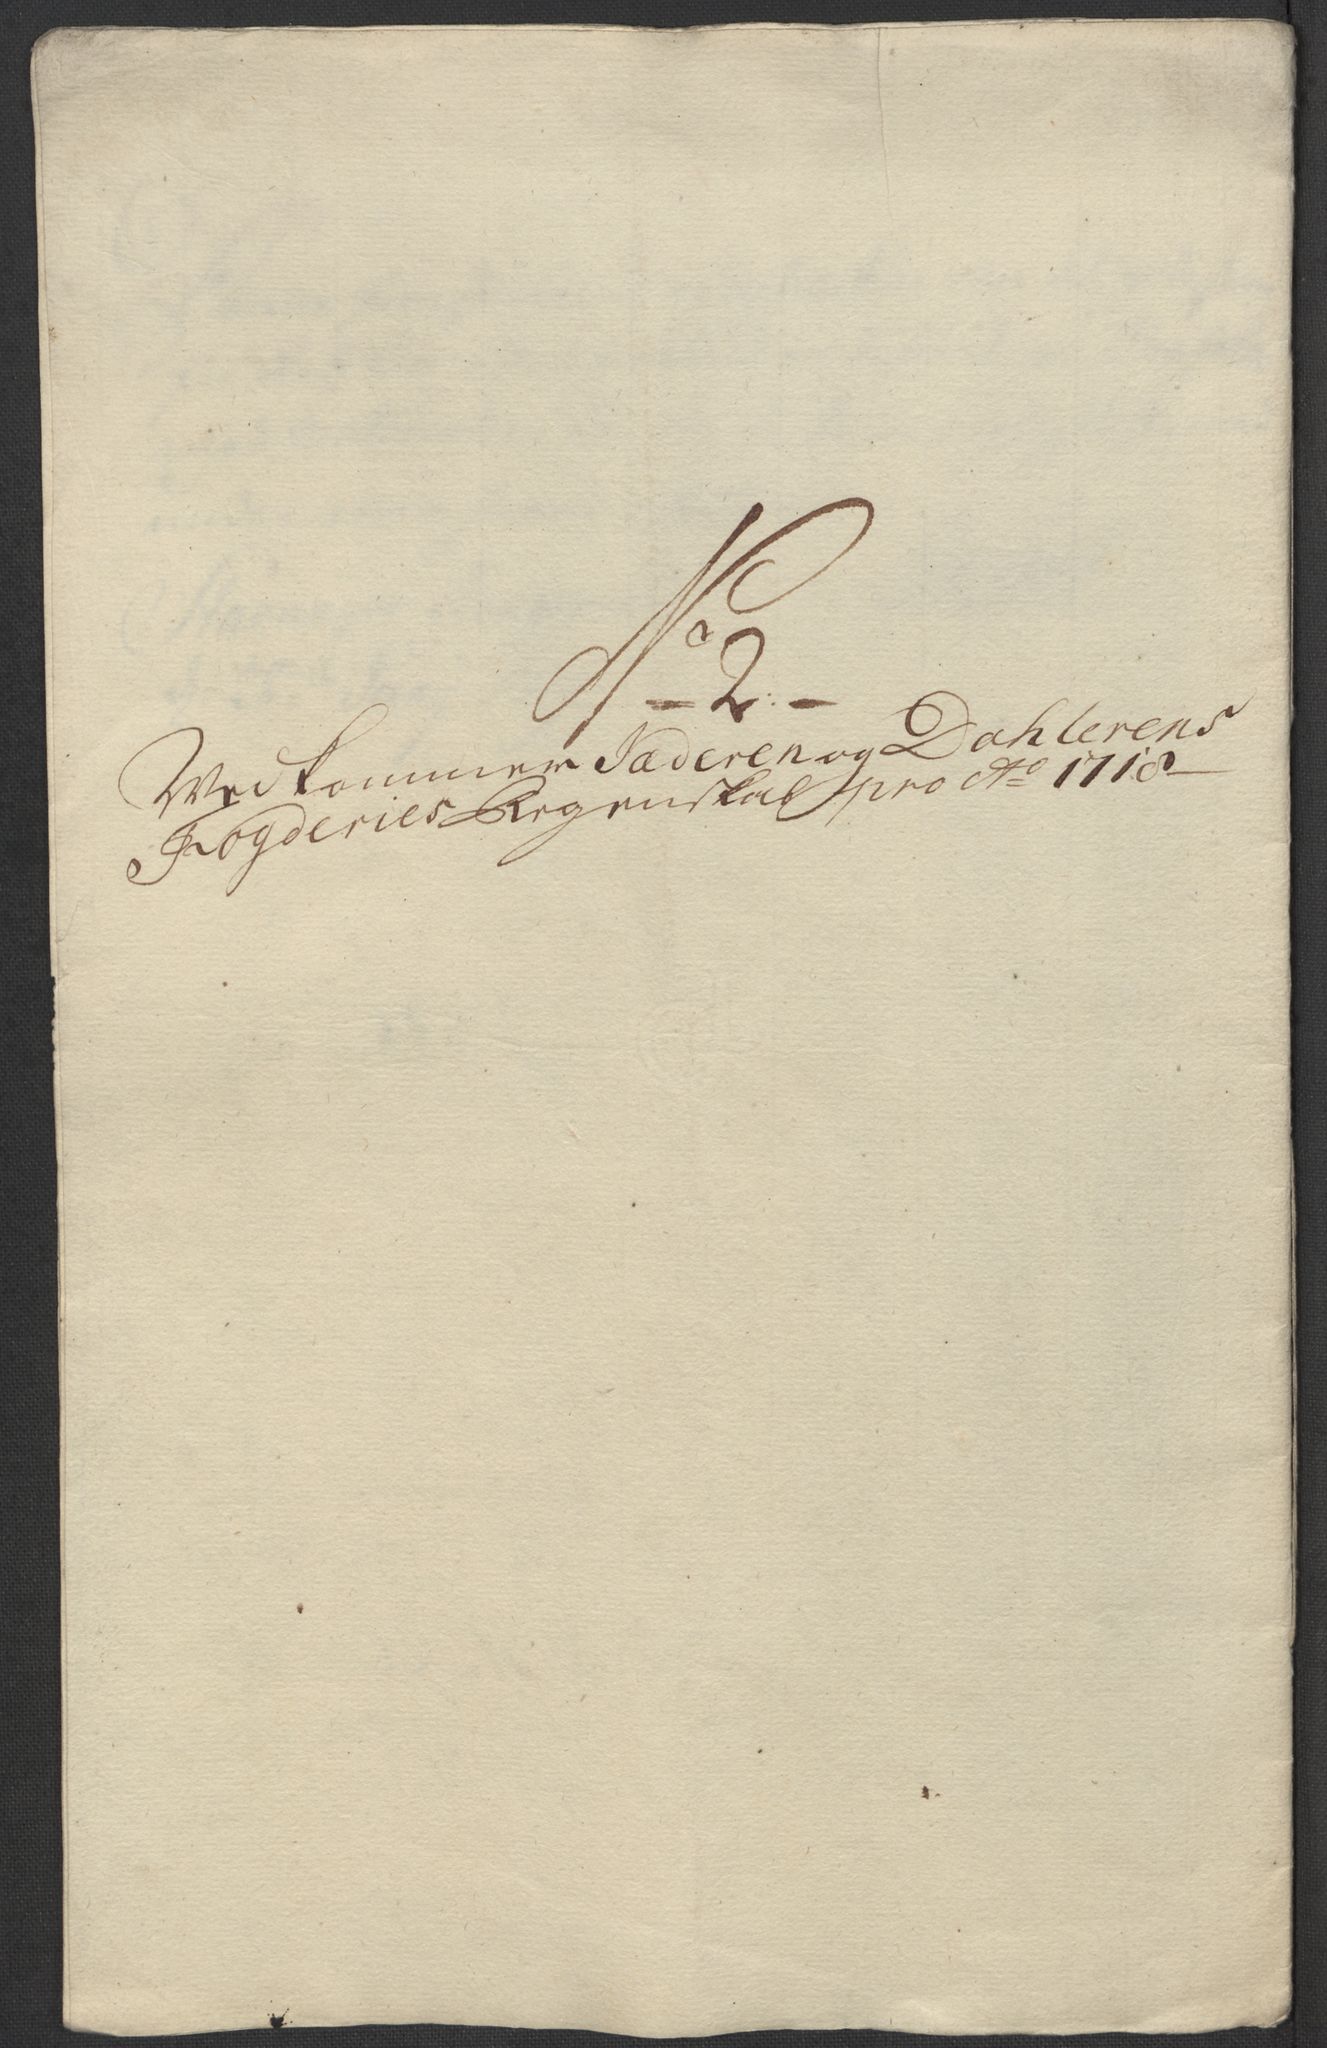 No
- 2 -
Vedkommer Jæderen og Dahlerens
Fogderies Regenskab pro Ao 1718